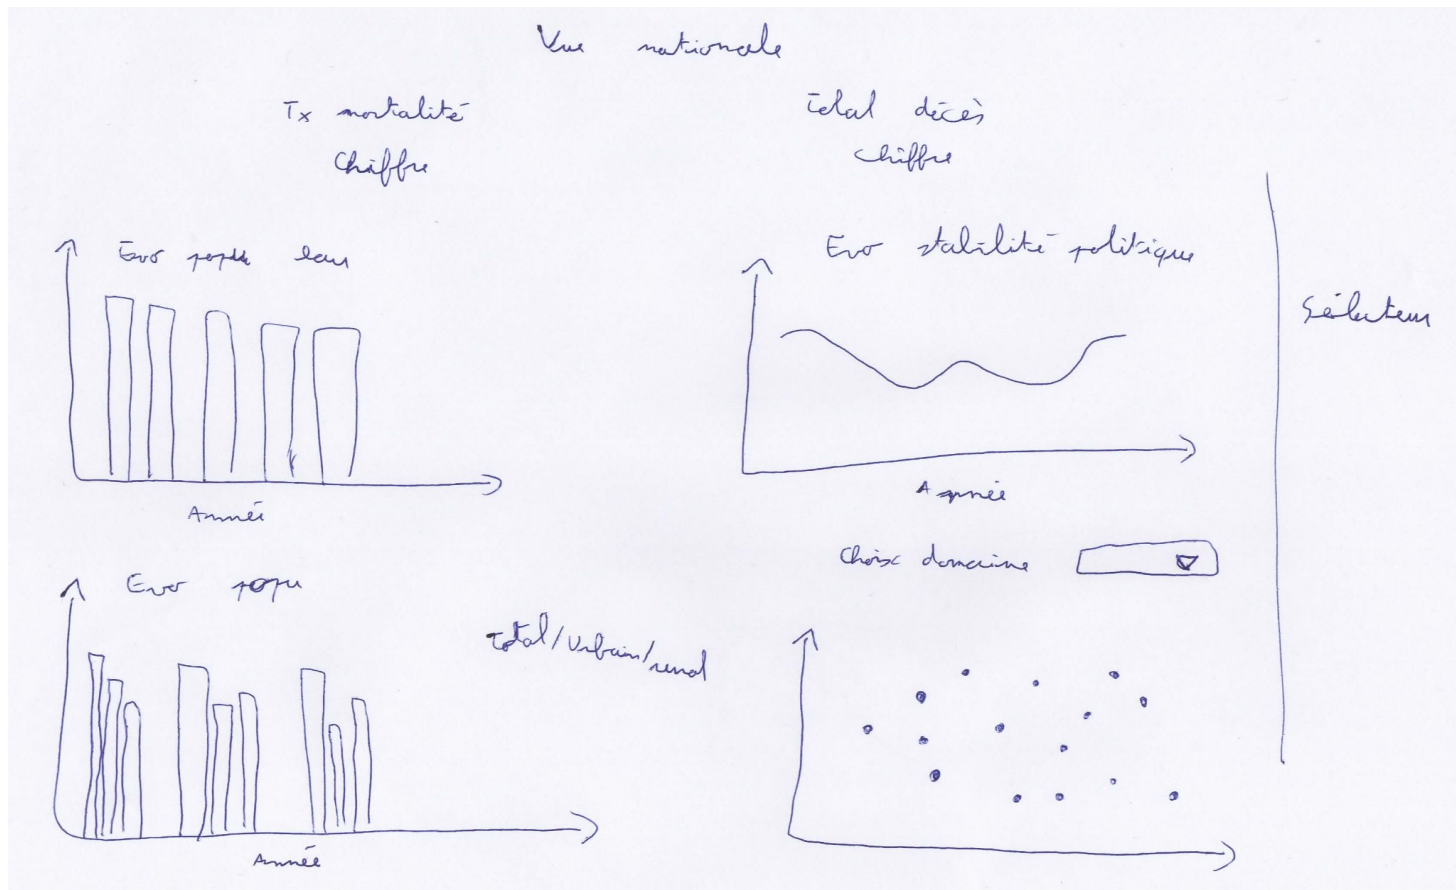 Vue nationale
Tx mortalité
Chiffre
Total décès
Chiffre
Evo popu eau
Année
Evo stabilité politique
Année
Sélecteur
Choix domaine
Evo popu
Total/Urbain/rural
Année